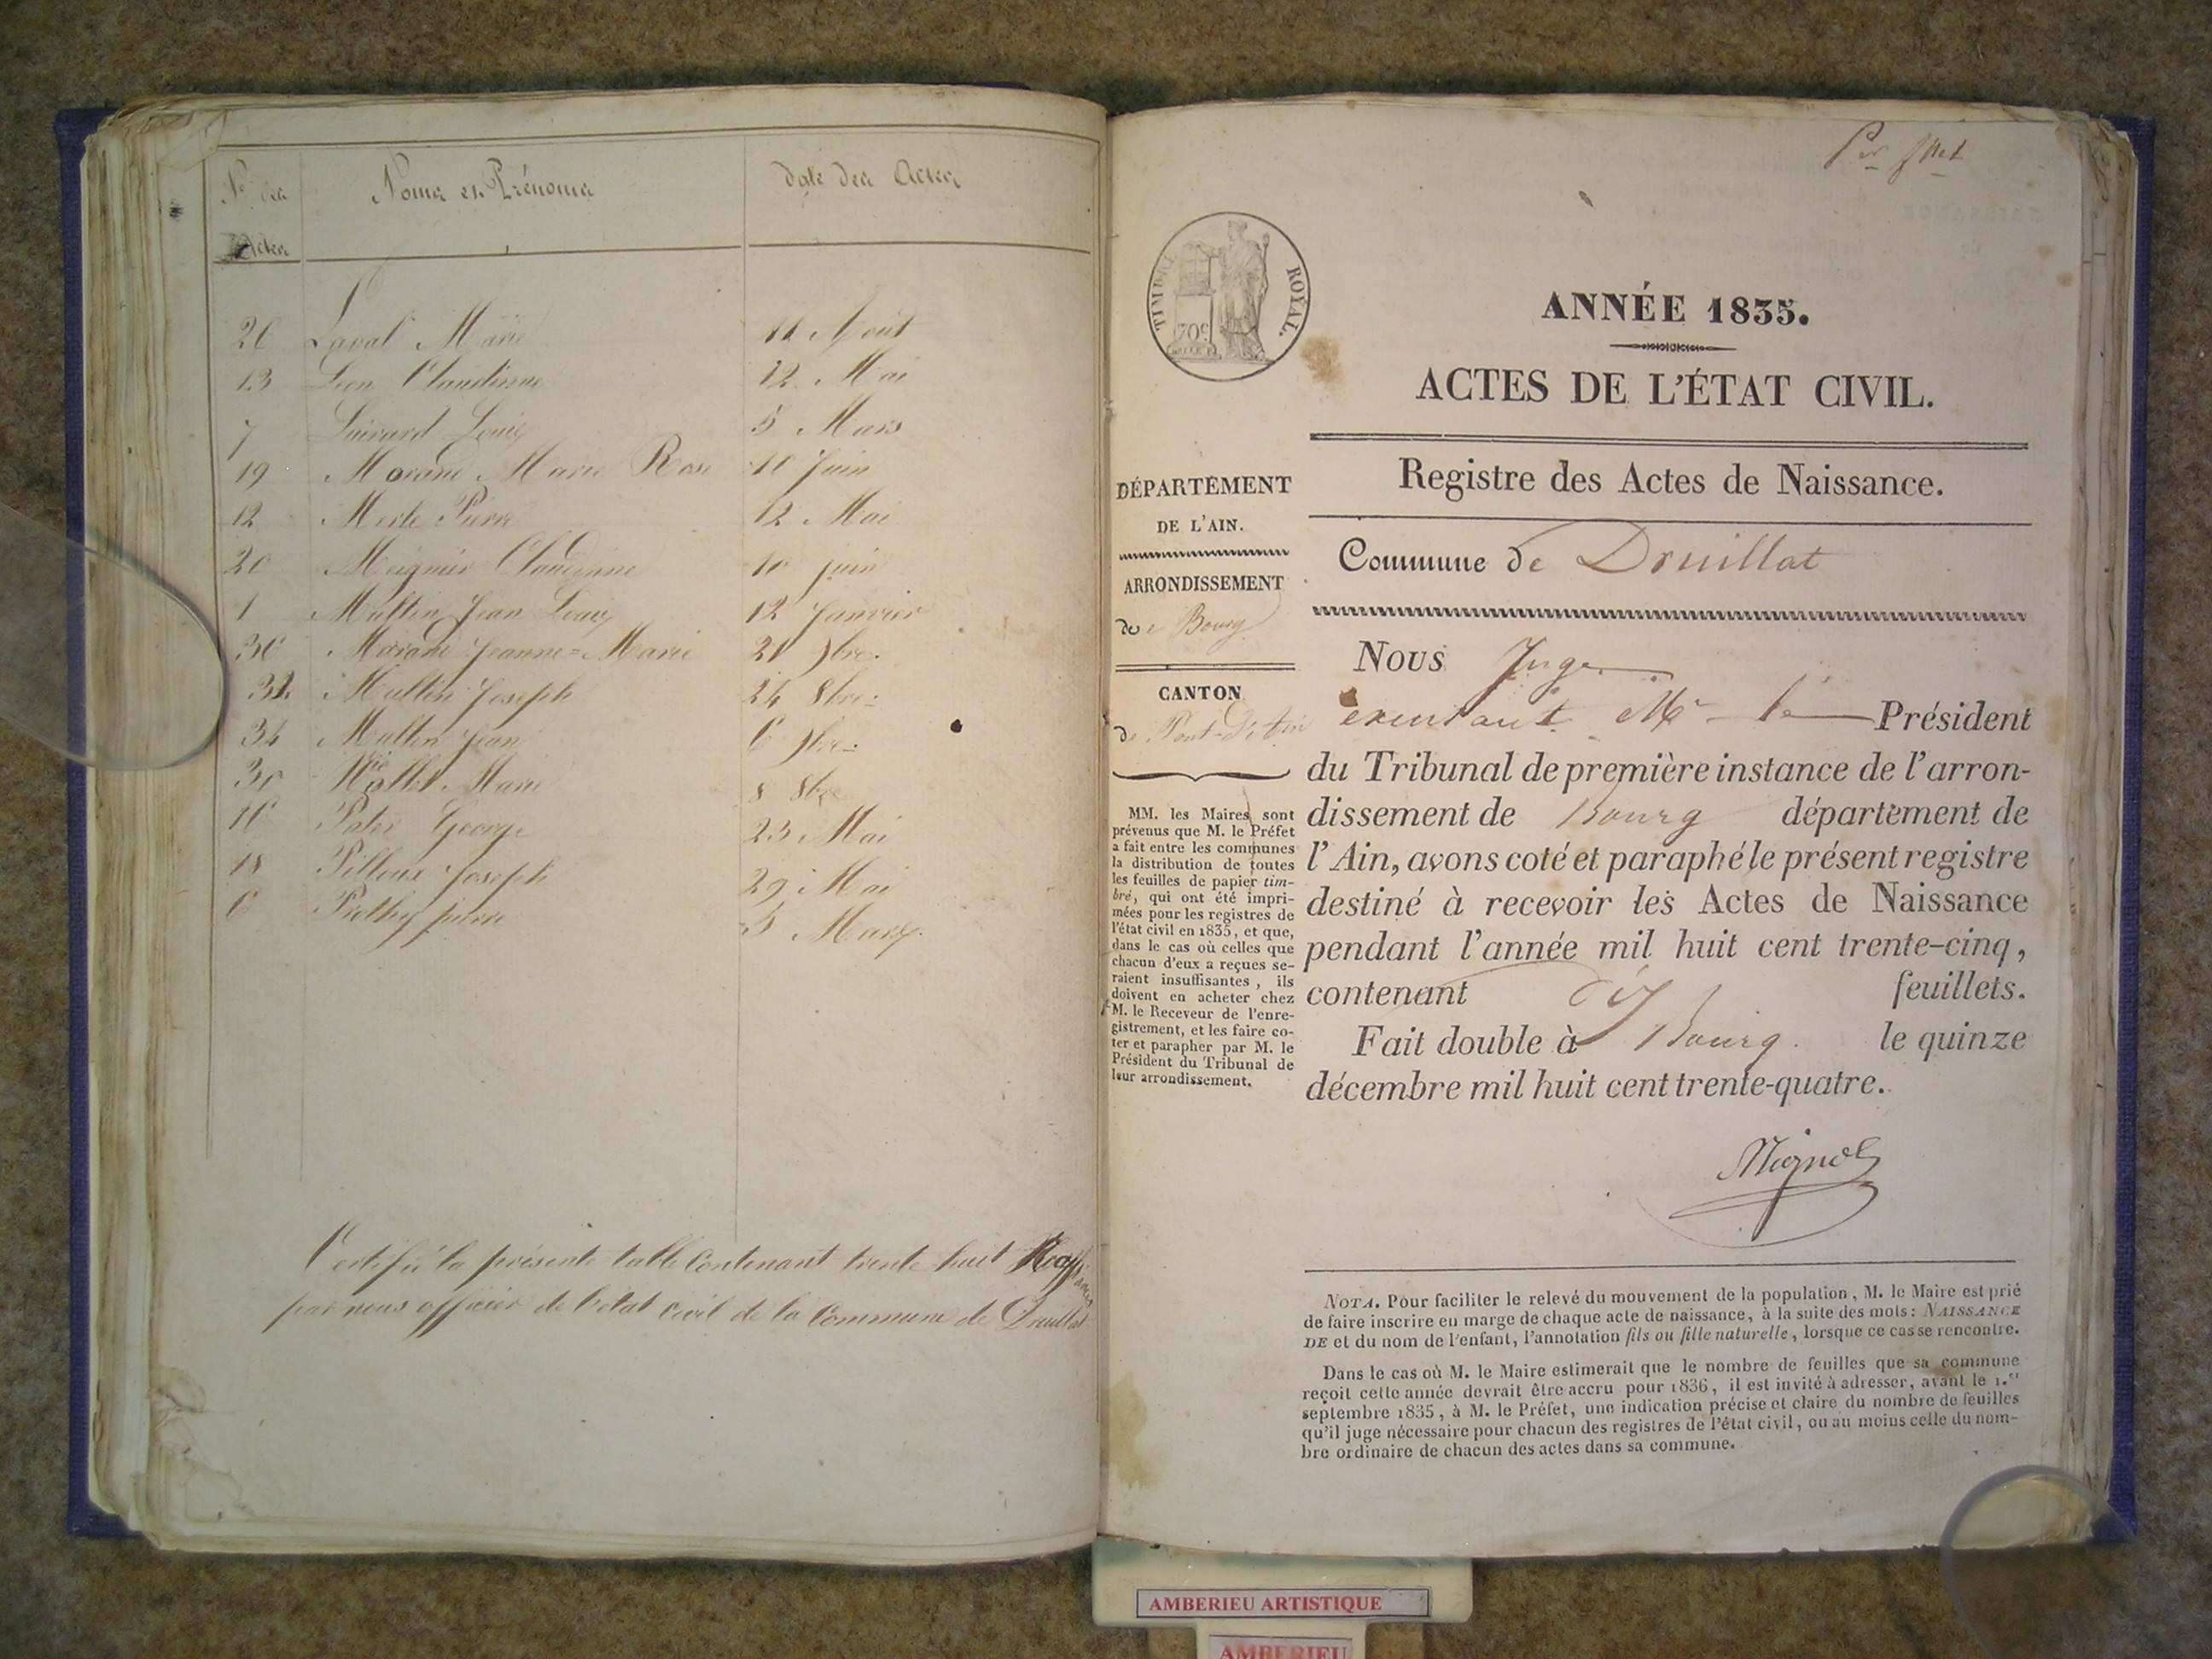 Nos des
Actes
Noms et Prénoms
date des Actes
Laval Marie 11 Août
13 Leon Claudinne 12 Mai
7 Louis 5 Mars
19 Morand Marie Rose 10 Juin
12 Merle Pierre 12 Mai
20 Claudinne 10 juin
1 Multin Jean Louis 12 Janvier
30 Morand Jeanne=Marie 21 7bre.
Multin Joseph 24 8bre=
34 Multin Jean 6 9bre=
Marie 8 8bre
16 George 23 Mai
18 Joseph 29 Mai
6 pierre 5 Mars
Certifié la présente table Contenant trente huit
par nous officier de l'état civil de la Commune de Druillat
Per
TIMBRE ROYAL.
70c
ANNÉE 1835.
ACTES DE L'ÉTAT CIVIL.
Registre des Actes de Naissance.
Commune de Druillat
DÉPARTEMENT
DE L'AIN.
ARRONDISSEMENT
de Bourg
CANTON
de Pont-d'Ain
MM. les Maires sont
prévenus que M. le Préfet
a fait entre les communes
la distribution de toutes
les feuilles de papier tim-
bré, qui ont été impri-
mées pour les registres de
l'état civil en 1835, et que,
dans le cas où celles que
chacun d'eux a reçues se-
raient insuffisantes, ils
doivent en acheter chez
M. le Receveur de l'enre-
gistrement, et les faire co-
ter et parapher par M. le
Président du Tribunal de
leur arrondissement.
Nous Juge
Mr le Président
du Tribunal de première instance de l'arron-
dissement de Bourg département de
l'Ain, avons coté et paraphé le présent registre
destiné à recevoir les Actes de Naissance
pendant l'année mil huit cent trente-cinq,
contenant dix feuillets.
Fait double à Bourg. le quinze
décembre mil huit cent trente-quatre.
NOTA. Pour faciliter le relevé du mouvement de la population, M. le Maire est prié
de faire inscrire en marge de chaque acte de naissance, à la suite des mots: NAISSANCE
DE et du nom de l'enfant, l'annotation fils ou fille naturelle, lorsque ce cas se rencontre.
Dans le cas où M. le Maire estimerait que le nombre de feuilles que sa commune
reçoit cette année devrait être accru pour 1836, il est invité à adresser, avant le 1.er
septembre 1835, à M. le Préfet, une indication précise et claire du nombre de feuilles
qu'il juge nécessaire pour chacun des registres de l'état civil, ou au moins celle du nom-
bre ordinaire de chacun des actes dans sa commune.
AMBERIEU ARTISTIQUE
AMBERIEU